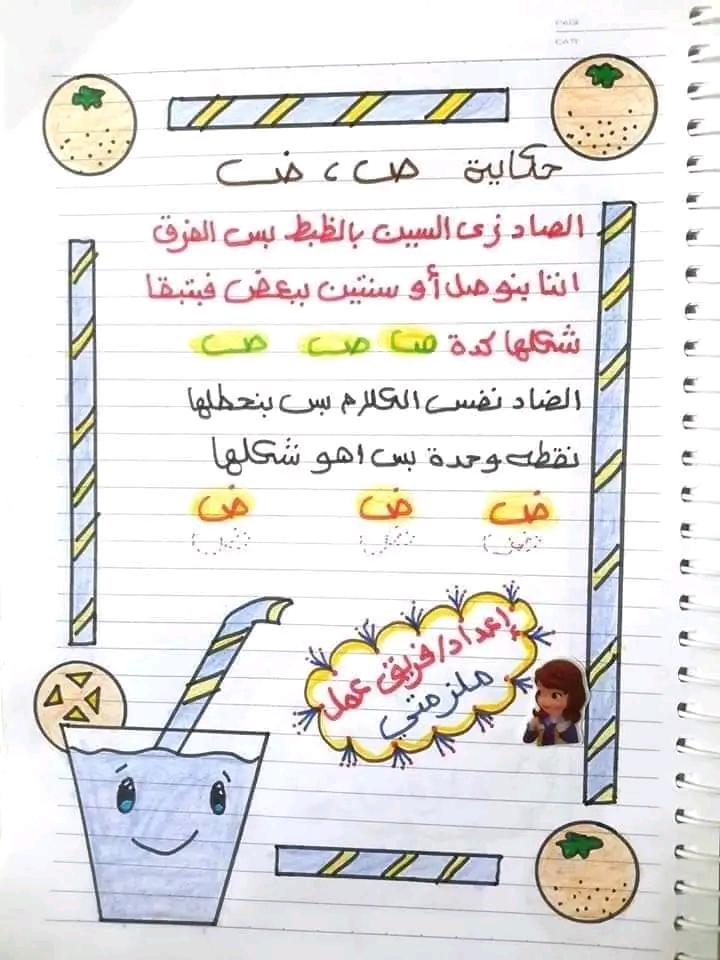 حكاية ص ، ض
الصاد زى السين بالظبط بس الفرق
اننا بنوصل أو سنتين ببعض فبتبقا
شكلها كدة ص ص ص
الضاد نفس الكلام بس بنحطلها
نقطه وحدة بس اهو شكلها
ض ض ض
ض ض ض
إعداد/فريق عمل
ملزمتي